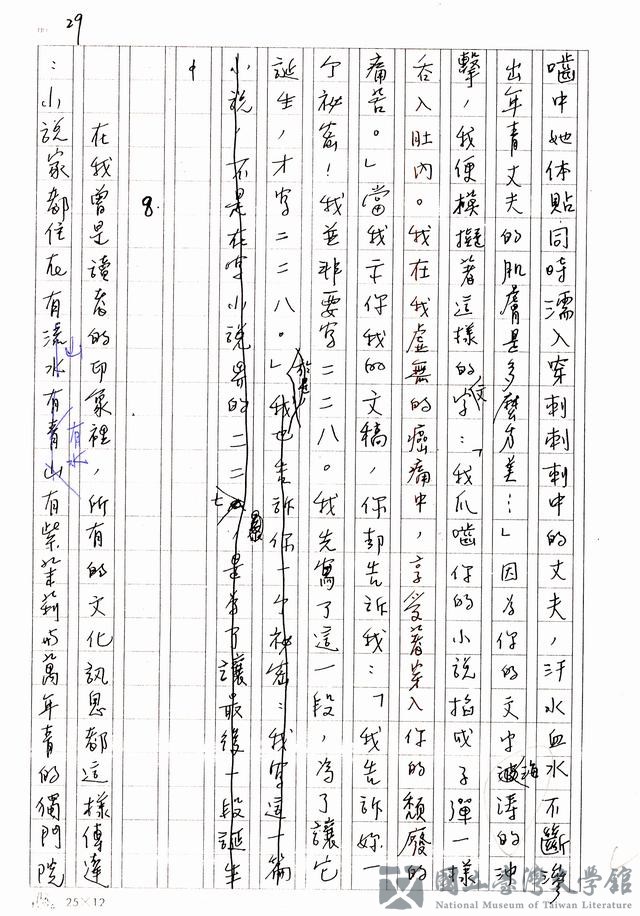 29
嚙中她体貼同時濡入穿刺刺刺中的丈夫，汗水血水不斷滲
出年青丈夫的肌膚是多麼方美…」因為你的文字波濤的沖
擊，我便模擬著這樣的文字：「我爪嚙你的小說掐成子彈一樣
吞入肚內。我在我虛無的癌痛中，享受著穿入你的頹廢的
痛苦。」當我示你我的文稿，你却告訴我：「我告訴妳一
个祕密！我並非要字二二八。我先寫了這一段，為了讓它
誕生，才字二二八。」於是我也告訴你一个祕密：我字這一篇
小說，不是在字小說界的二二七，是為了讓最後一段誕生
8.
在我曾是讀者的印象裡，所有的文化訊息都這樣傳達
：小說家都住在有流水有青山有紫茉莉的萬年青的獨門院
山
有水
25×12
國立臺灣文學館
National Museum of Taiwan Literature